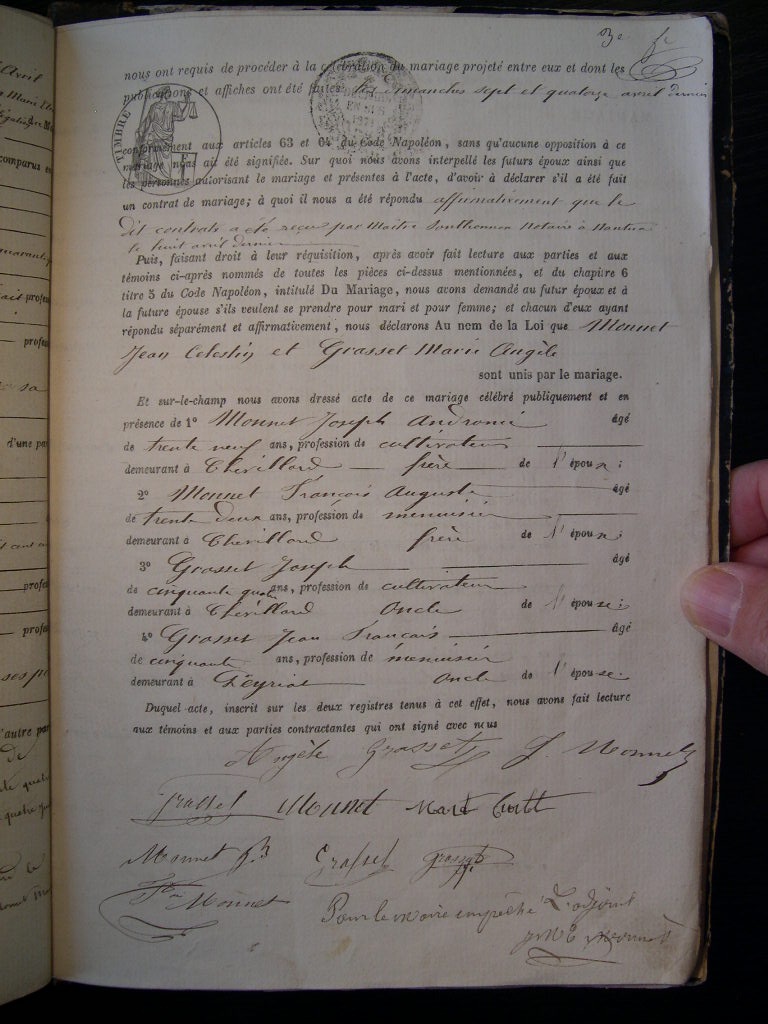 3e f
nous ont requis de procéder à la célébration du mariage projeté entre eux et dont les
publications et affiches ont été faites les dimanches sept et quatorze avril dernier
TIMBRE
conformément aux articles 63 et 64 du Code Napoléon, sans qu'aucune opposition à ce
mariage nous ait été signifiée. Sur quoi nous avons interpellé les futurs époux ainsi que
les personnes autorisant le mariage et présentes à l'acte, d'avoir à déclarer s'il a été fait
un contrat de mariage; à quoi il nous a été répondu affirmativement que le
dit contrats a été reçu par Maitre Notaire à Nantua
le huit avril dernier
Puis, faisant droit à leur réquisition, après avoir fait lecture aux parties et aux
témoins ci-après nommés de toutes les pièces ci-dessus mentionnées, et du chapitre 6
titre 5 du Code Napoléon, intitulé Du Mariage, nous avons demandé au futur époux et à
la future épouse s'ils veulent se prendre pour mari et pour femme; et chacun d'eux ayant
répondu séparément et affirmativement, nous déclarons Au nom de la Loi que Monnet
Jean Celestin et Grasset Marie Angèle
sont unis par le mariage.
Et sur-le-champ nous avons dressé acte de ce mariage célébré publiquement et en
présence de 1º Monnet Joseph Andronic âgé
de trente neuf ans, profession de cultivateur
demeurant à Chevillard frère de l'époux;
2º Monnet François Auguste âgé
de trente deux ans, profession de menuisier
demeurant à Chevillard frère de l'époux;
3º Grasset Joseph âgé
de cinquante quatre ans, profession de cultivateur
demeurant à Chevillard Oncle de l'épouse;
4º Grasset Jean François âgé
de cinquante ans, profession de menuisier
demeurant à Peyriat Oncle de l'épouse.
Duquel acte, inscrit sur les deux registres tenus à cet effet, nous avons fait lecture
aux témoins et aux parties contractantes qui ont signé avec nous
Angèle Grasset J. Monnet
Grasset Monnet
Monnet Grasset Grasset
Monnet
Pour le maire empêché L'adjoint
Monnet